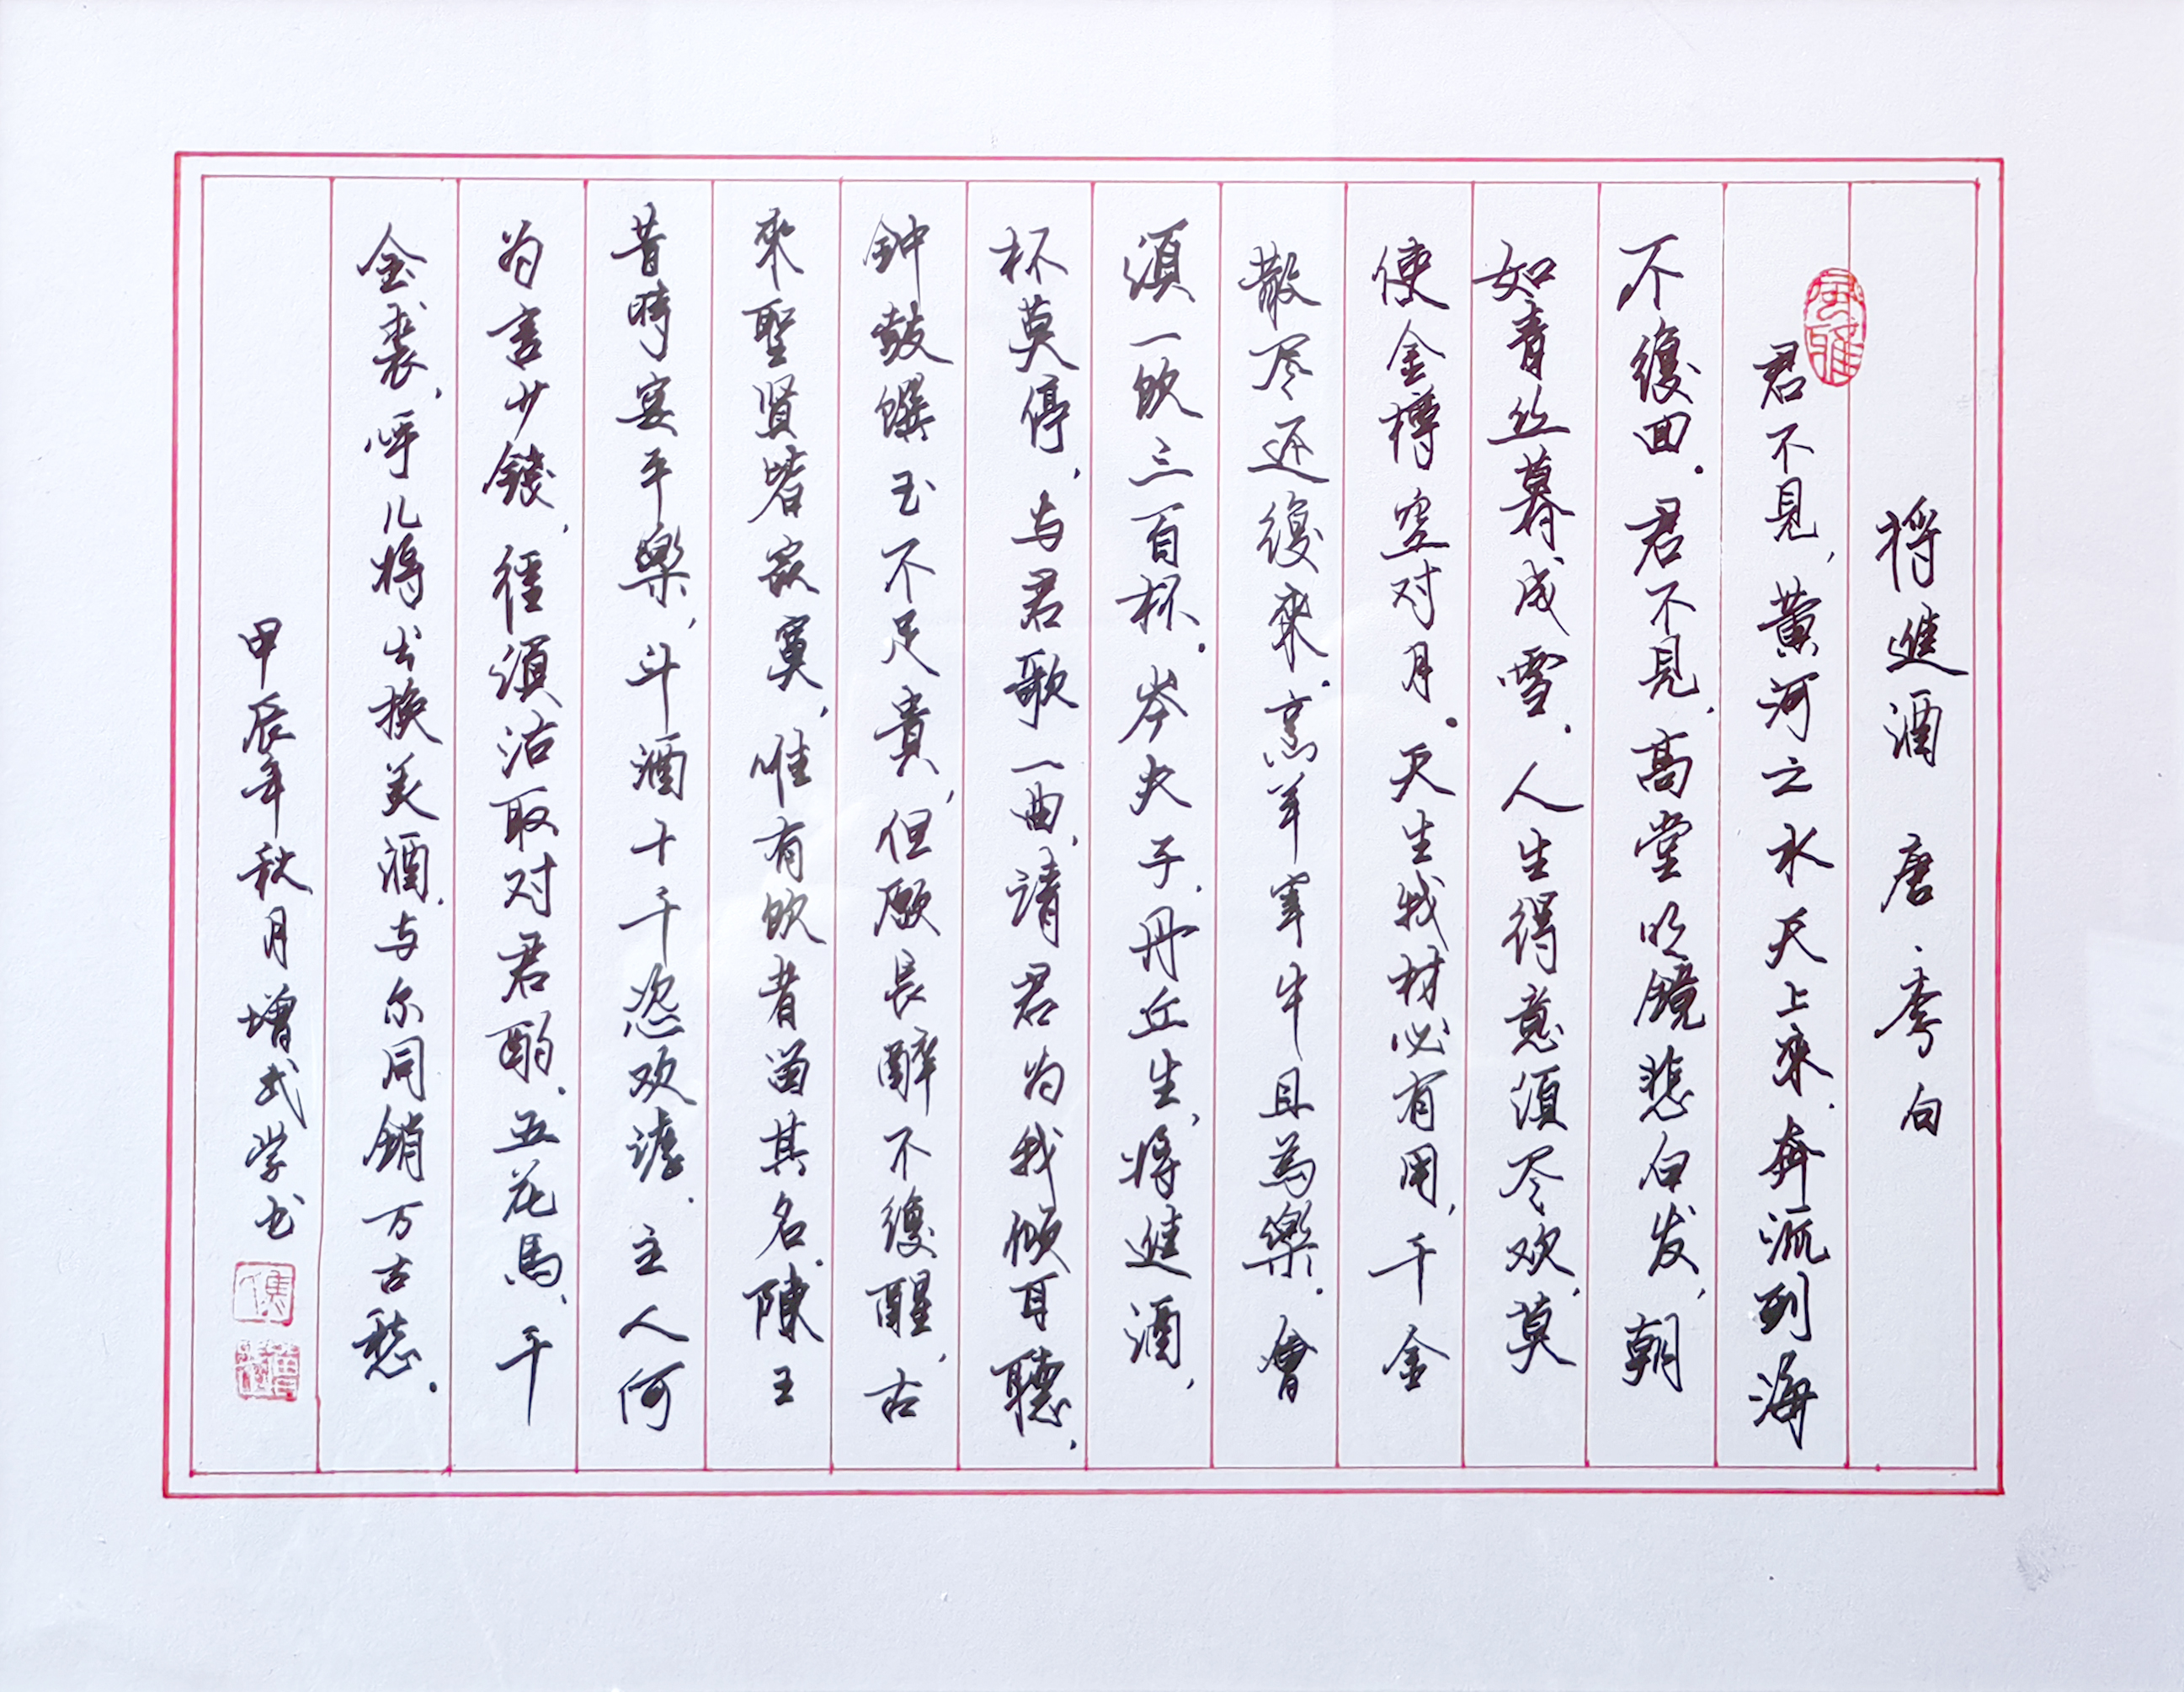 将進酒 唐·李白
風雅
君不見，黄河之水天上来，奔流到海
不復回。君不見，高堂明鏡悲白发，朝
如青丝暮成雪。人生得意須尽欢，莫
使金樽空对月。天生我材必有用，千金
散尽还復来。烹羊宰牛且為樂。會
須一飲三百杯。岑夫子，丹丘生，将進酒，
杯莫停，与君歌一曲，请君为我倾耳聽，
钟鼓馔玉不足贵，但願長醉不復醒，古
来聖贤皆寂寞，唯有飲者留其名。陳王
昔時宴平樂，斗酒十千恣欢谑。主人何
为言少錢，徑須沽取对君酌。五花馬、千
金裘，呼儿将出换美酒，与尔同销万古愁。
甲辰年秋月增武学书